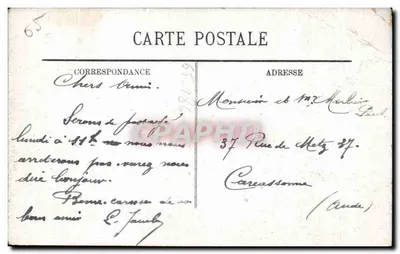 65
CARTE POSTALE
CORRESPONDANCE
ADRESSE
Chers Amis.
Serons de passage
lundi à 11h nous nous
arreterons pas venez nous
dire bonjour.
Bonne caresse de vos
bons amis L. Jacob
Monsieur et Me Merlin
Paul
37 Rue de Metz 37.
Carcassonne
(Aude)